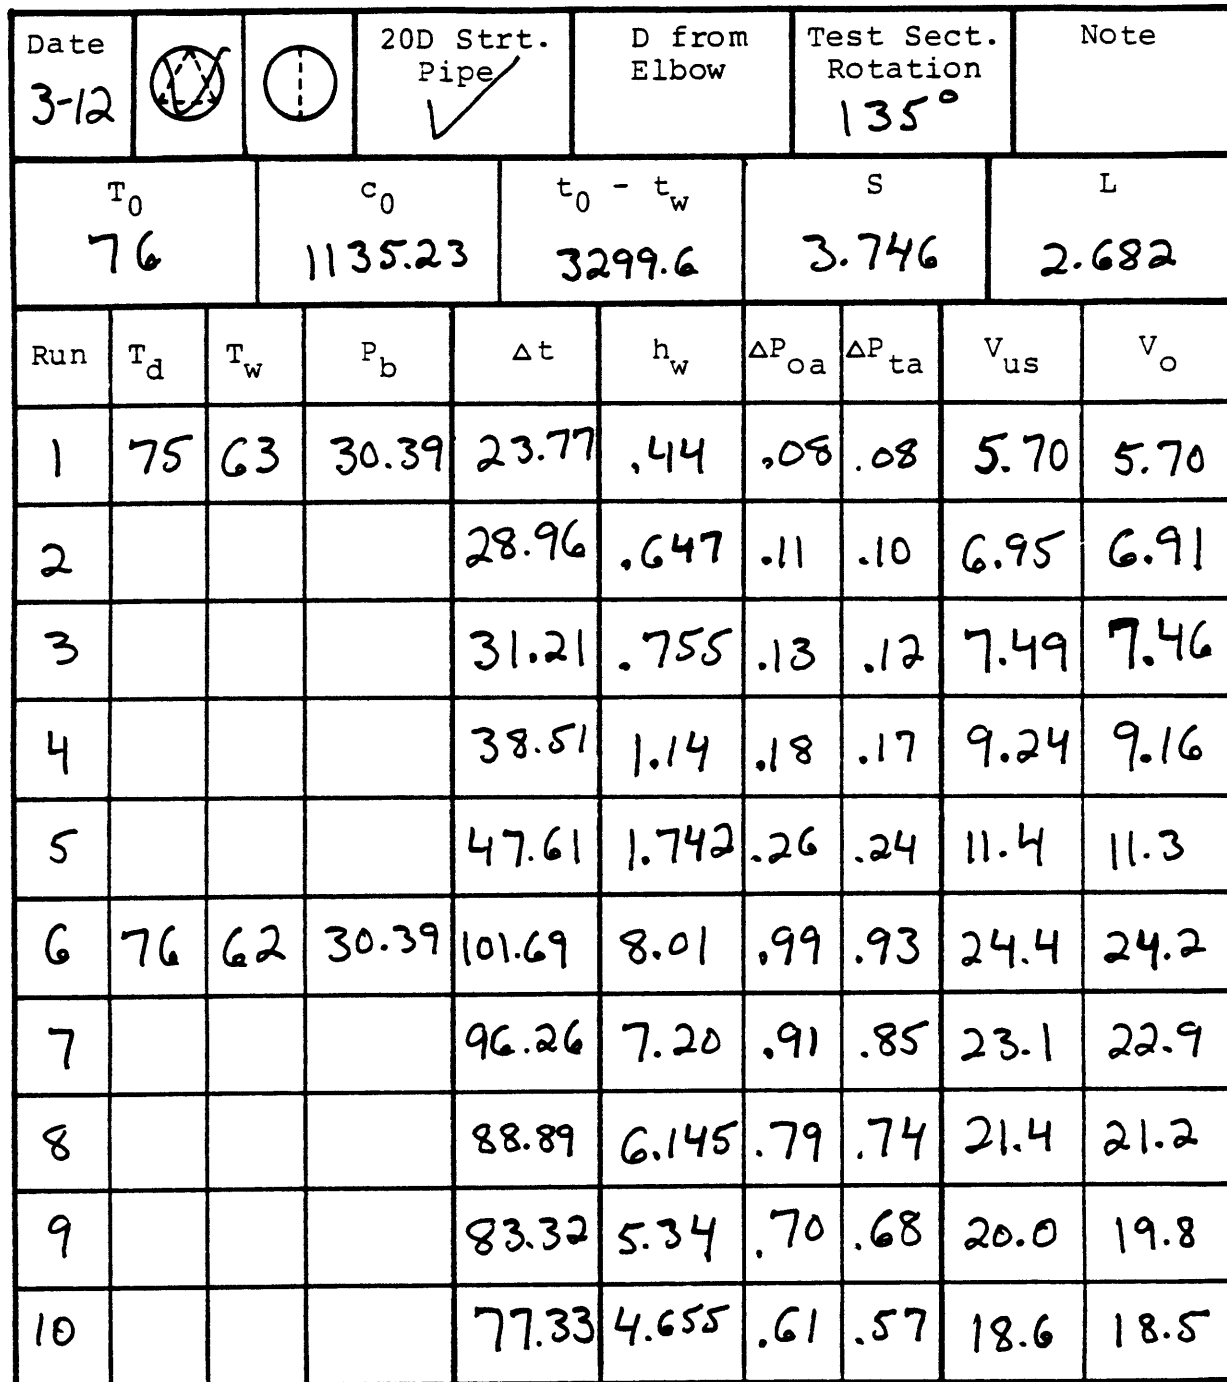 Date 20D Strt. D from Test Sect. Note
Pipe Elbow Rotation
3-12 ✓ 135°
T0 c0 t0 - tw S L
76 1135.23 3299.6 3.746 2.682
Run Td Tw Pb Δt hw ΔPoa ΔPta Vus Vo
1 75 63 30.39 23.77 .44 .08 .08 5.70 5.70
2 28.96 .647 .11 .10 6.95 6.91
3 31.21 .755 .13 .12 7.49 7.46
4 38.51 1.14 .18 .17 9.24 9.16
5 47.61 1.742 .26 .24 11.4 11.3
6 76 62 30.39 101.69 8.01 .99 .93 24.4 24.2
7 96.26 7.20 .91 .85 23.1 22.9
8 88.89 6.145 .79 .74 21.4 21.2
9 83.32 5.34 .70 .68 20.0 19.8
10 77.33 4.655 .61 .57 18.6 18.5